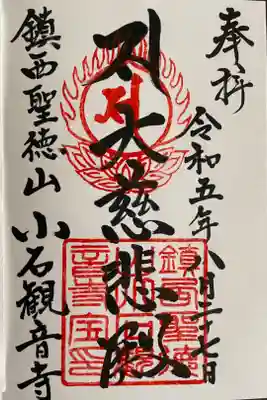 奉拝
令和五年八月二十七日
大慈悲殿
鎮西聖徳山
小石観音寺